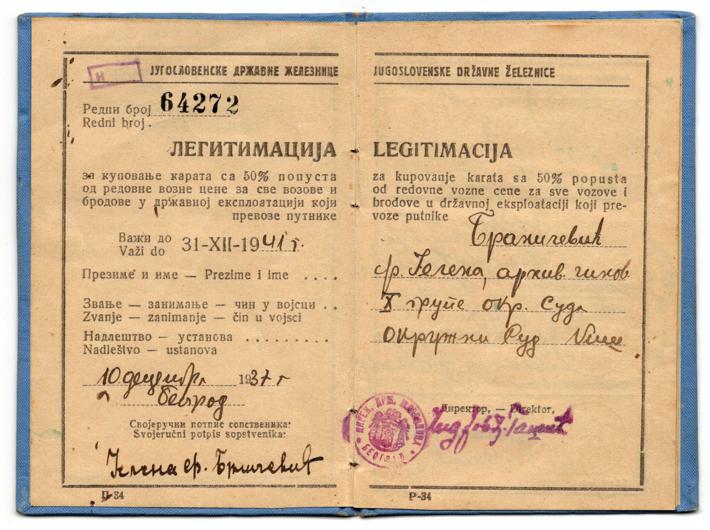 ЈУГОСЛОВЕНСКЕ ДРЖАВНЕ ЖЕЛЕЗНИЦЕ
Редни број 64272
Redni broj.
ЛЕГИТИМАЦИЈА
за куповање карата са 50% попуста
од редовне возне цене за све возове и
бродове у државној експлоатацији који
превозе путнике
Важи до
Važi do 31-XII-1941 г.
Презиме и име — Prezime i ime ....
Звање — занимање — чин у војсци ..
Zvanje — zanimanje — čin u vojsci
Надлештво — установа .........
Nadleštvo — ustanova
10 децембра 1937 г
Београд
Својеручни потпис сопственика:
Svojeručni potpis sopstvenika:
Јелена ср.
П-34
JUGOSLOVENSKE DRŽAVNE ŽELEZNICE
LEGITIMACIJA
za kupovanje karata sa 50% popusta
od redovne vozne cene za sve vozove i
brodove u državnoj eksploataciji koji pre-
voze putnike
Браничевић
ср. Јелена, архив. чинов
X групе окр. Суда
Окружни Суд
Директор, — Direktor,
БЕОГРАД
P-34